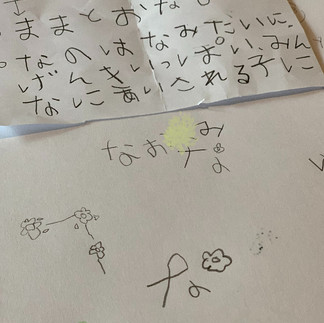 ままとおなじ
なのはなみたいに
げんきいっぱい、みん
なにあいされる子に
なおみ
な
な